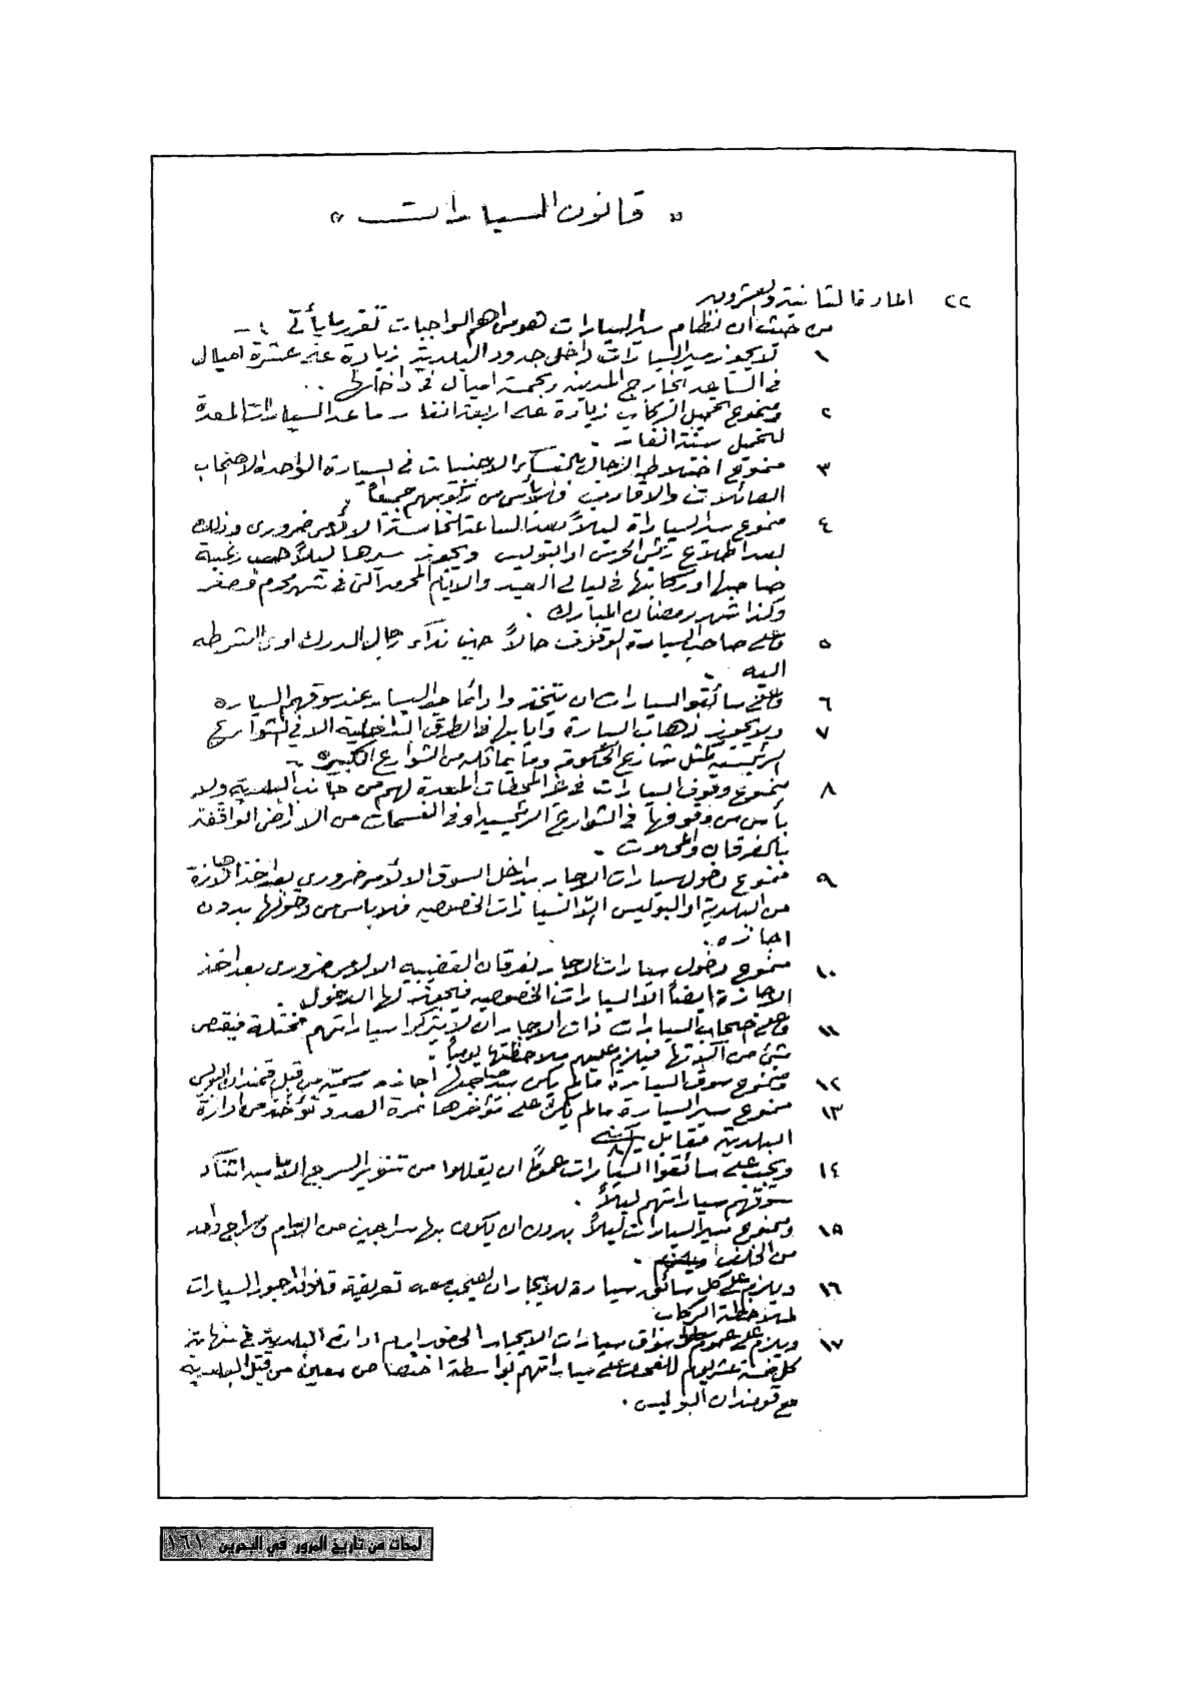 « قانون السيارات »
٢٢ المادة الثانية والعشرون
من حيث ان نظام سير السيارات هو من اهم الواجبات تقرر ما يأتي :-
١ لا يجوز سير السيارات داخل حدود البلدية زيادة عن عشرة اميال
في الساعة خارج المدينة وخمسة اميال في داخلها ..
٢ وممنوع تحميل الركاب زيادة على اربعة انفار ما عدا السيارات المعدة
لتحميل ستة انفار .
٣ ممنوع اختلاط الرجال بالنساء الاجنبيات في السيارة الواحدة
العائلات والاقارب فلا بأس من ركوبهم جميعاً
٤ ممنوع سير السيارة ليلاً بعد الساعة الخامسة الا لأمر ضروري وذلك
بعد اطلاع رئيس الحرس او البوليس ويجوز سيرها ليلاً حسب رغبة
صاحبها او ركابها في ليالي العيد والايام المحرمة التي في شهر محرم وصفر
وكذا شهر رمضان المبارك .
٥ وعلى صاحب السيارة الوقوف حالاً حين نداء رجال الدرك او الشرطه
اليه .
٦ وعلى سائقو السيارات ان يتخذوا دائما اليسار عند سوقهم السياره
٧ ولا يجوز ذهاب السيارة وايابها في الطرق الداخلية الا في الشوارع
الرئيسية مثل شارع الحكومه وما يماثله من الشوارع الكبيره .
٨ ممنوع وقوف السيارات في غير المحطات المعدة لهم من جانب البلديه ولا
بأس من وقوفها في الشوارع الرئيسيه او في الفسحات من الاراضي الواقعة
بالفرقان والمحلات .
٩ ممنوع دخول سيارات الاجار داخل السوق الا لأمر ضروري بعد اخذ الاجازة
من البلدية او البوليس الا السيارات الخصوصيه فلا باس من دخولها بدون
اجازه .
١٠ ممنوع دخول سيارات الاجار لفرقان القضيبيه الا لامر ضروري بعد اخذ
الاجازة ايضاً الا السيارات الخصوصيه فيجوز لها الدخول .
١١ وعلى اصحاب السيارات ذات الاجار ان لا يتركوا سياراتهم مختلة فينقص
شئ من آلاتها فيلزم عليهم ملاحظتها يومياً .
١٢ وممنوع سوق السيارة ما لم يكن بيد صاحبها اجازه رسمية من قبل قمندان البوليس
١٣ ممنوع سير السيارة ما لم يكن على مؤخرها نمرة العدد تؤخذ من ادارة
البلدية مقابل
١٤ ويجب على سائقوا السيارات عموماً ان يقللوا من تنوير السرج الاماميه اثناء
سوقهم سياراتهم ليلاً .
١٥ وممنوع سير السيارات ليلاً بدون ان يكون بها سراجين من الامام وسراج واحد
من الخلف .
١٦ ويلزم على كل سائق سيارة للايجار ان يصحب معه تعريفة قانون اجور السيارات
لملاحظة الركاب
١٧ ويلزم على عموم سواق سيارات الايجار الحضور امام ادارة البلدية في نهاية
كل خمسة عشر يوم للفحص على سياراتهم بواسطة اختصاص معين من قبل البلديه
مع قومندان البوليس .
لمحات من تاريخ المرور في البحرين ١٦١